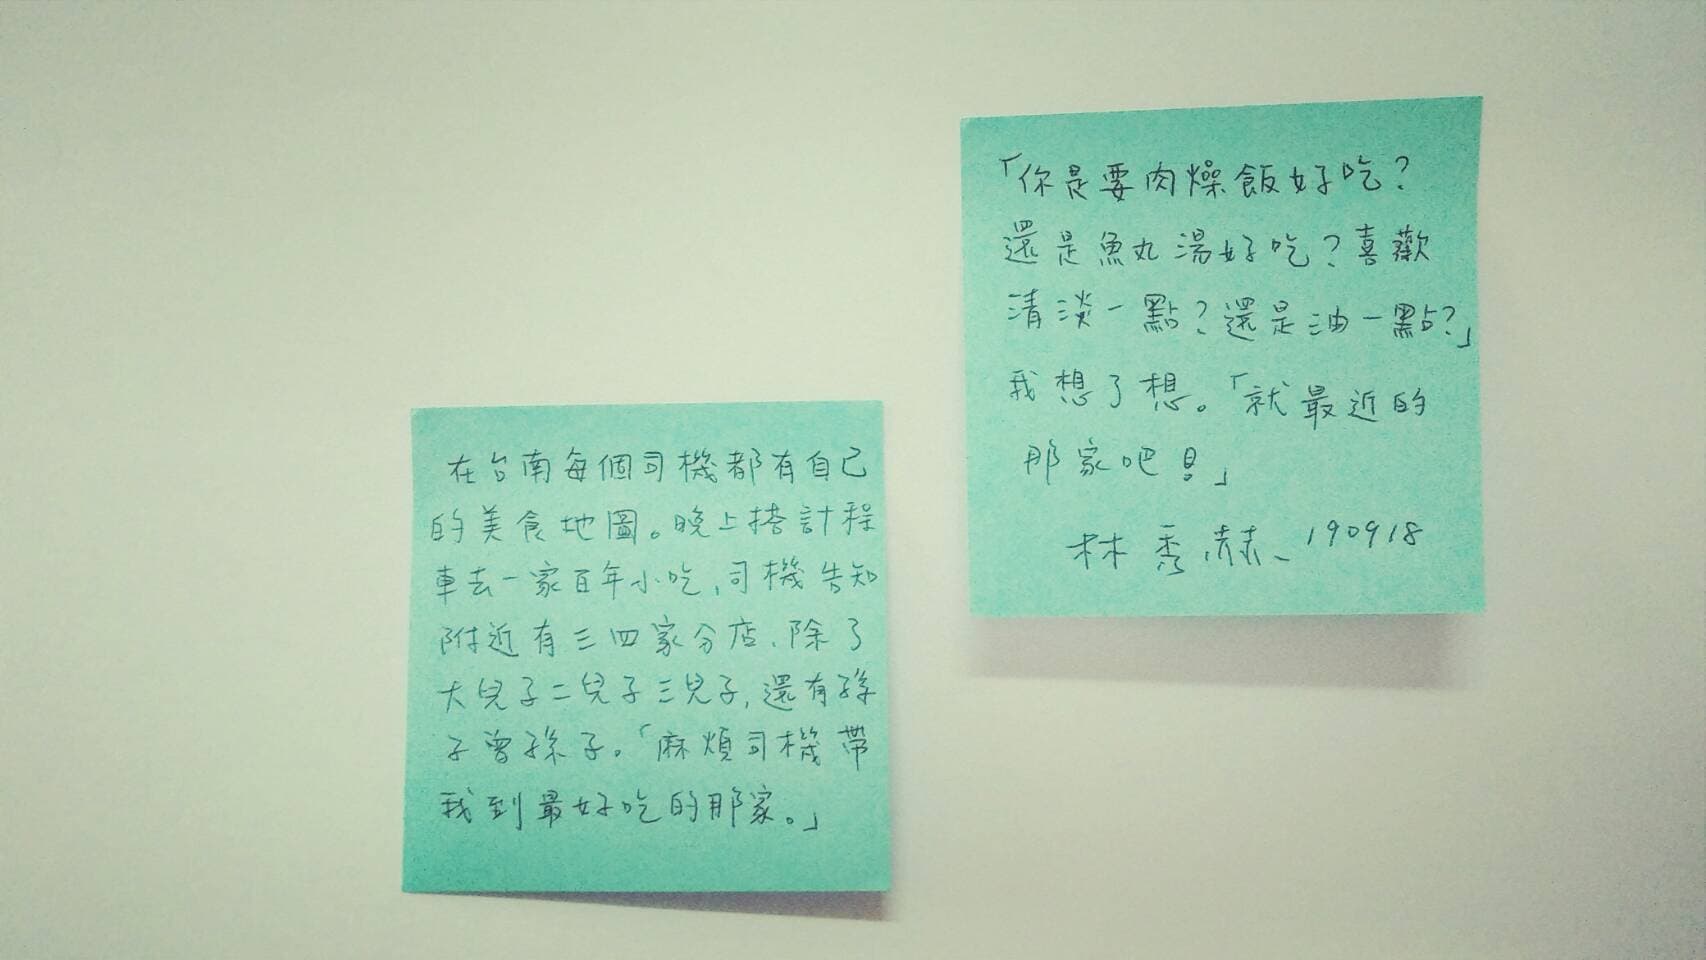 在台南每個司機都有自己
的美食地圖。晚上搭計程
車去一家百年小吃,司機告知
附近有三四家分店、除了
大兒子二兒子三兒子,還有孫
子曾孫子。「麻煩司機帶
我到最好吃的那家。」
「你是要肉燥飯好吃?
還是魚丸湯好吃?喜歡
清淡一點?還是油一點?」
我想了想。「就最近的
那家吧!」
林秀赫 190918